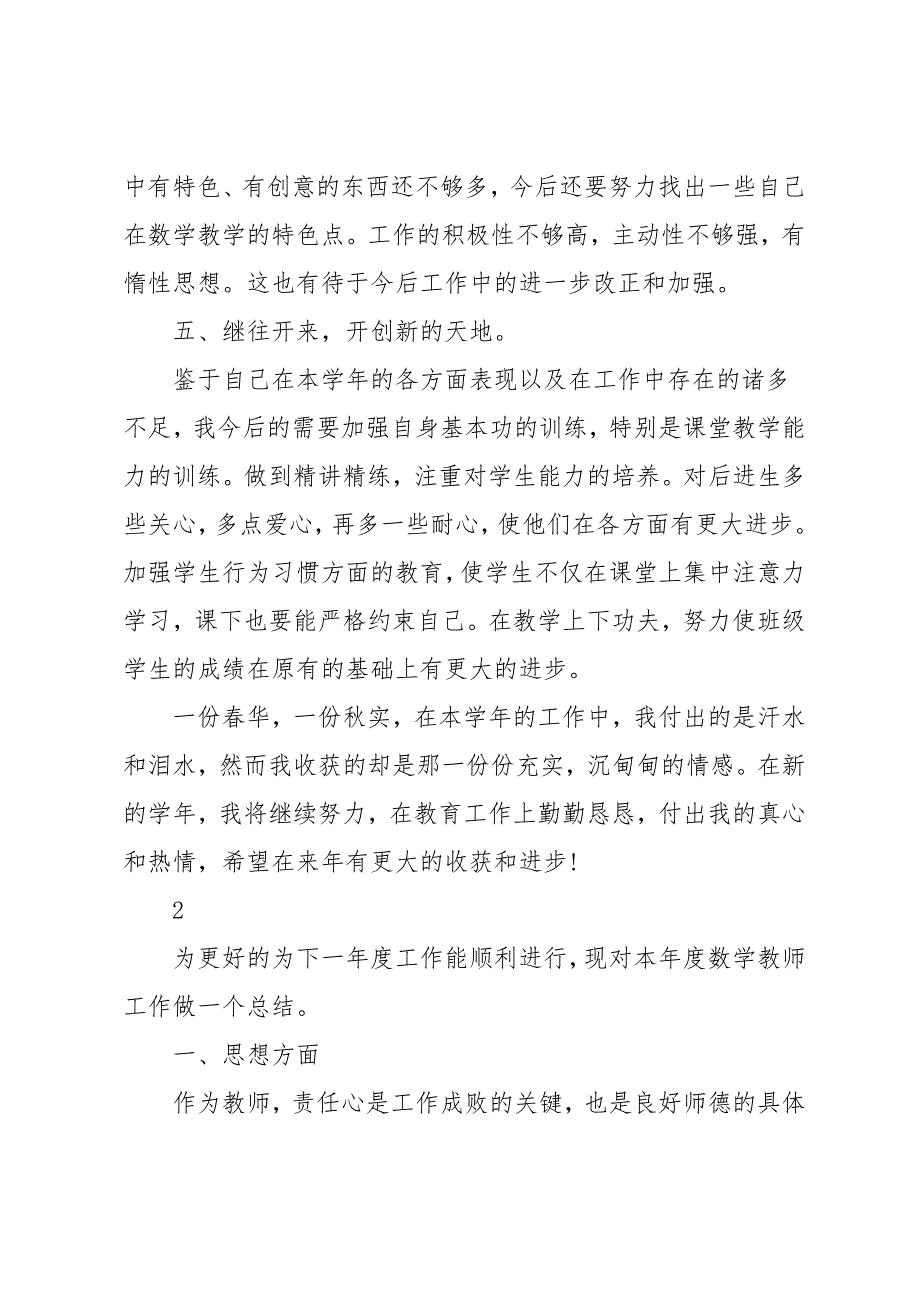 中有特色、有创意的东西还不够多，今后还要努力找出一些自己
在数学教学的特色点。工作的积极性不够高，主动性不够强，有
惰性思想。这也有待于今后工作中的进一步改正和加强。
五、继往开来，开创新的天地。
鉴于自己在本学年的各方面表现以及在工作中存在的诸多
不足，我今后的需要加强自身基本功的训练，特别是课堂教学能
力的训练。做到精讲精练，注重对学生能力的培养。对后进生多
些关心，多点爱心，再多一些耐心，使他们在各方面有更大进步。
加强学生行为习惯方面的教育，使学生不仅在课堂上集中注意力
学习，课下也要能严格约束自己。在教学上下功夫，努力使班级
学生的成绩在原有的基础上有更大的进步。
一份春华，一份秋实，在本学年的工作中，我付出的是汗水
和泪水，然而我收获的却是那一份份充实，沉甸甸的情感。在新
的学年，我将继续努力，在教育工作上勤勤恳恳，付出我的真心
和热情，希望在来年有更大的收获和进步!
2
为更好的为下一年度工作能顺利进行，现对本年度数学教师
工作做一个总结。
一、思想方面
作为教师，责任心是工作成败的关键，也是良好师德的具体